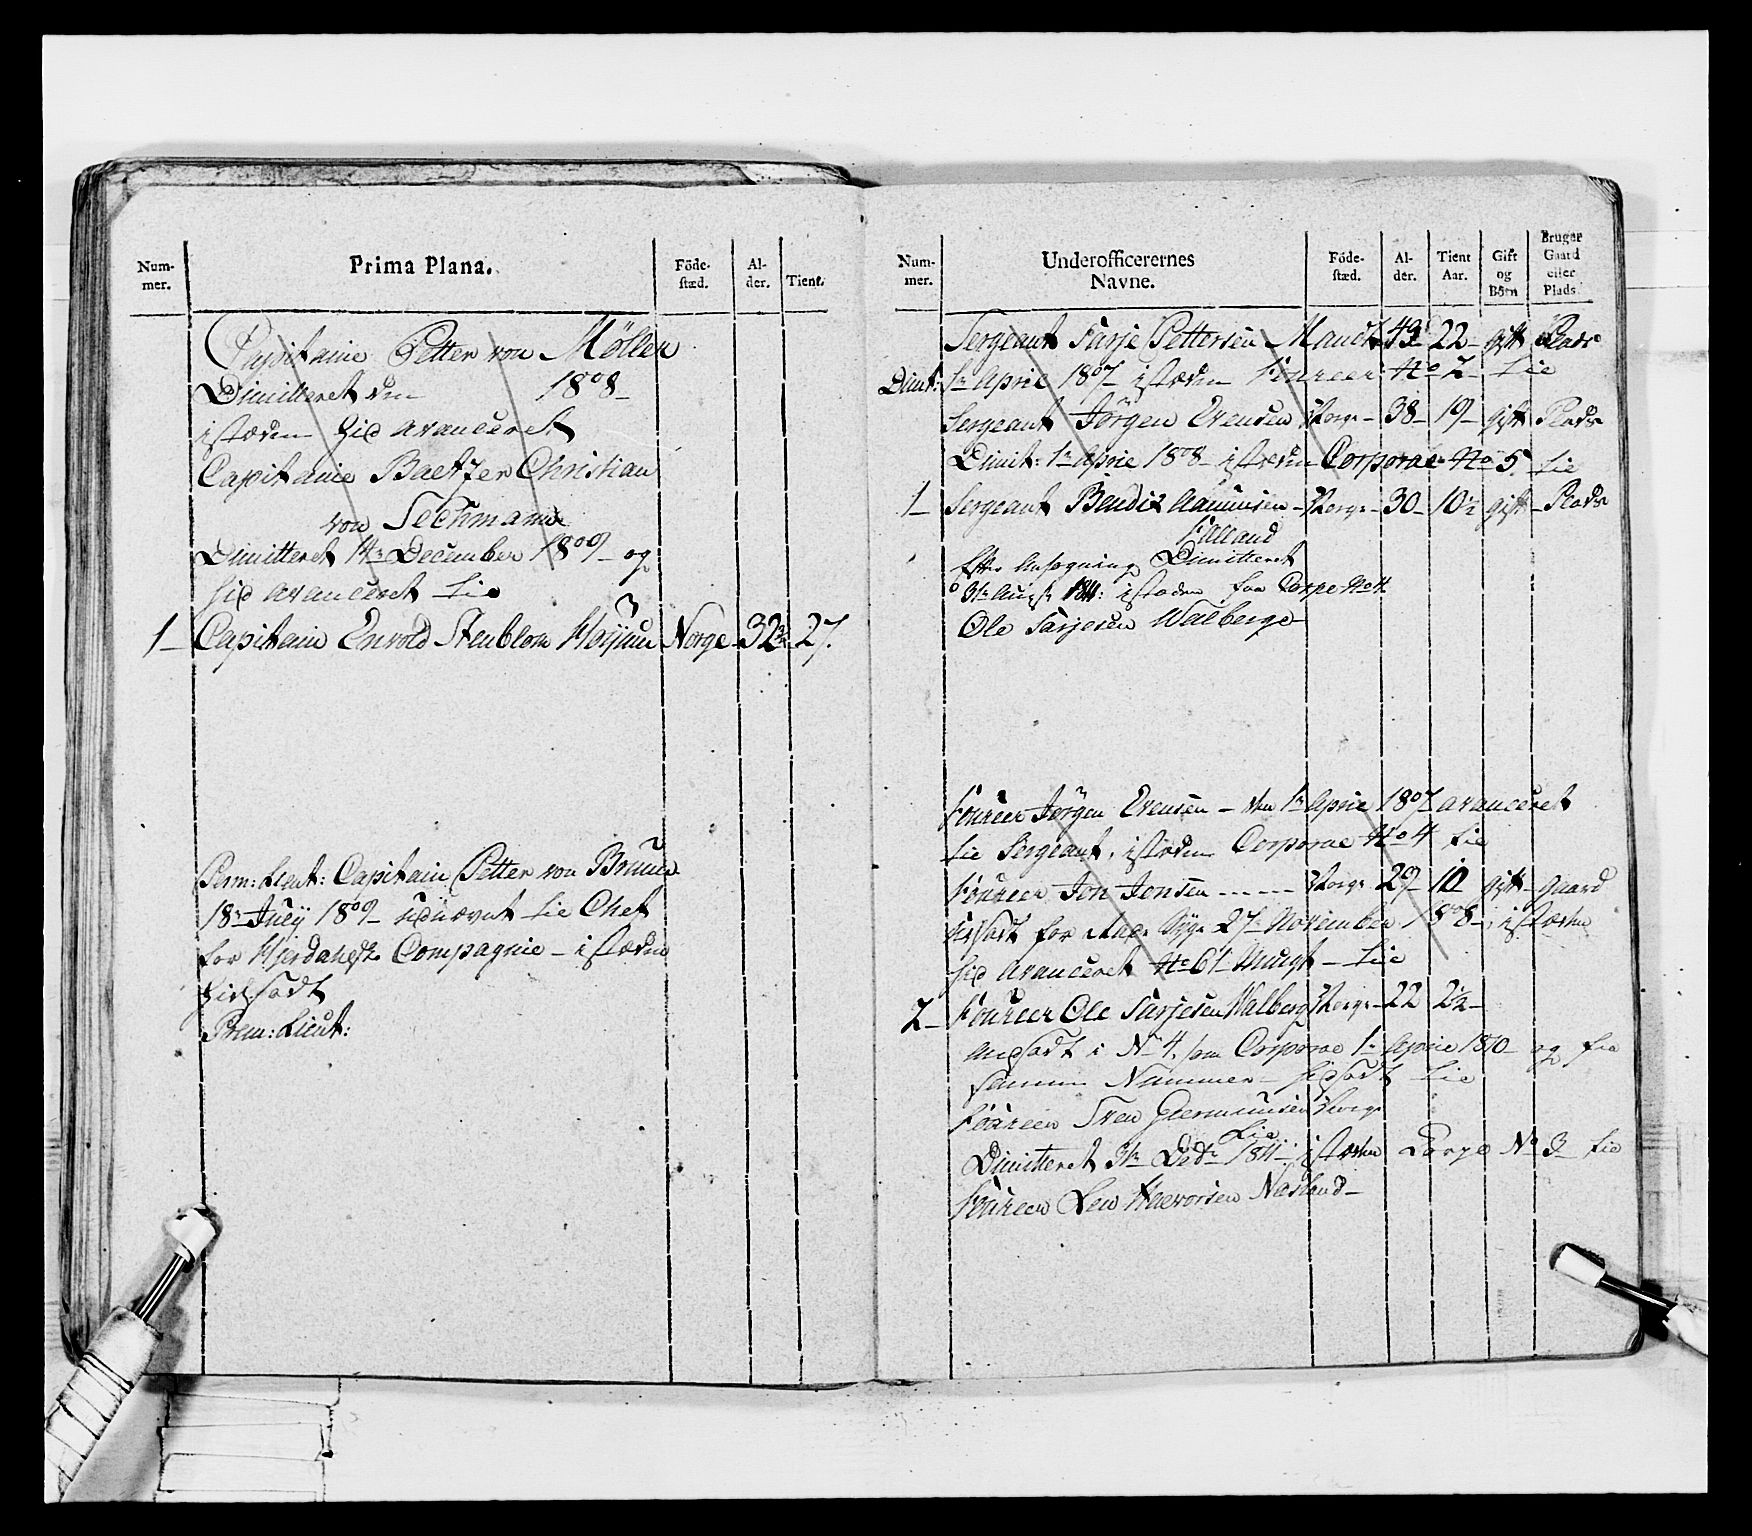 Num-
mer.
Prima Plana.
Föde-
stæd.
Al-
der.
Tient.
Capitaine Petter von Möller
Dimitteret den 1808
istæden hid avanceret
Capitaine Baetzer Christian
von Techmann
Dimitteret 14r December 1809 og
hid avanceret til
1 Capitain Envold Stenblom Norge 32 27
Prem: Lieut: Capitain Petter von Bruun
18r July 1809 udnævnt til Chef
for Compagnie istæden
hidsadt
Prem: Lieut:
Num-
mer.
Underofficerernes
Navne.
Föde-
stæd.
Al-
der.
Tient
Aar.
Gift
og
Börn
Bruger
Gaard
eller
Plads.
Sergeant Tarje Pettersen 43 22 gift Plads
Dimt: 1r April 1807 istæden Foureer No 2 til
Sergeant Jörgen Evensen Norge 38 19 gift Plads
Dimit: 1r April 1808 istæden Corporal No 5 til
1 Sergeant Bendix Aamunsen Norge 30 10½ gift Plads
Falland
Efter Ansøgning Dimitteret
31te August 1811: istæden fra Corpo No 4
Ole Tarjesen Walberge
Foureer Jörgen Evensen den 1r April 1807 avanceret
til Sergeant, istæden Corporal No 4 til
Foureer Jon Jensen Norge 29 10 gift gaard
hidsadt for 27 November 1808 istæden
hid avanceret No 61 Mungt til
2 Foureer Ole Tarjesen Walberg Norge 22 2½
ansadt i No 4, som Corporal 1r April 1810 og fra
samme Nummer hidsadt til
Foureer Sven Germunsen Norge
Lie
Dimitteret 31r 1811 istæden Corpo No 3 til
Foureer Lew Halvorsen Nasland